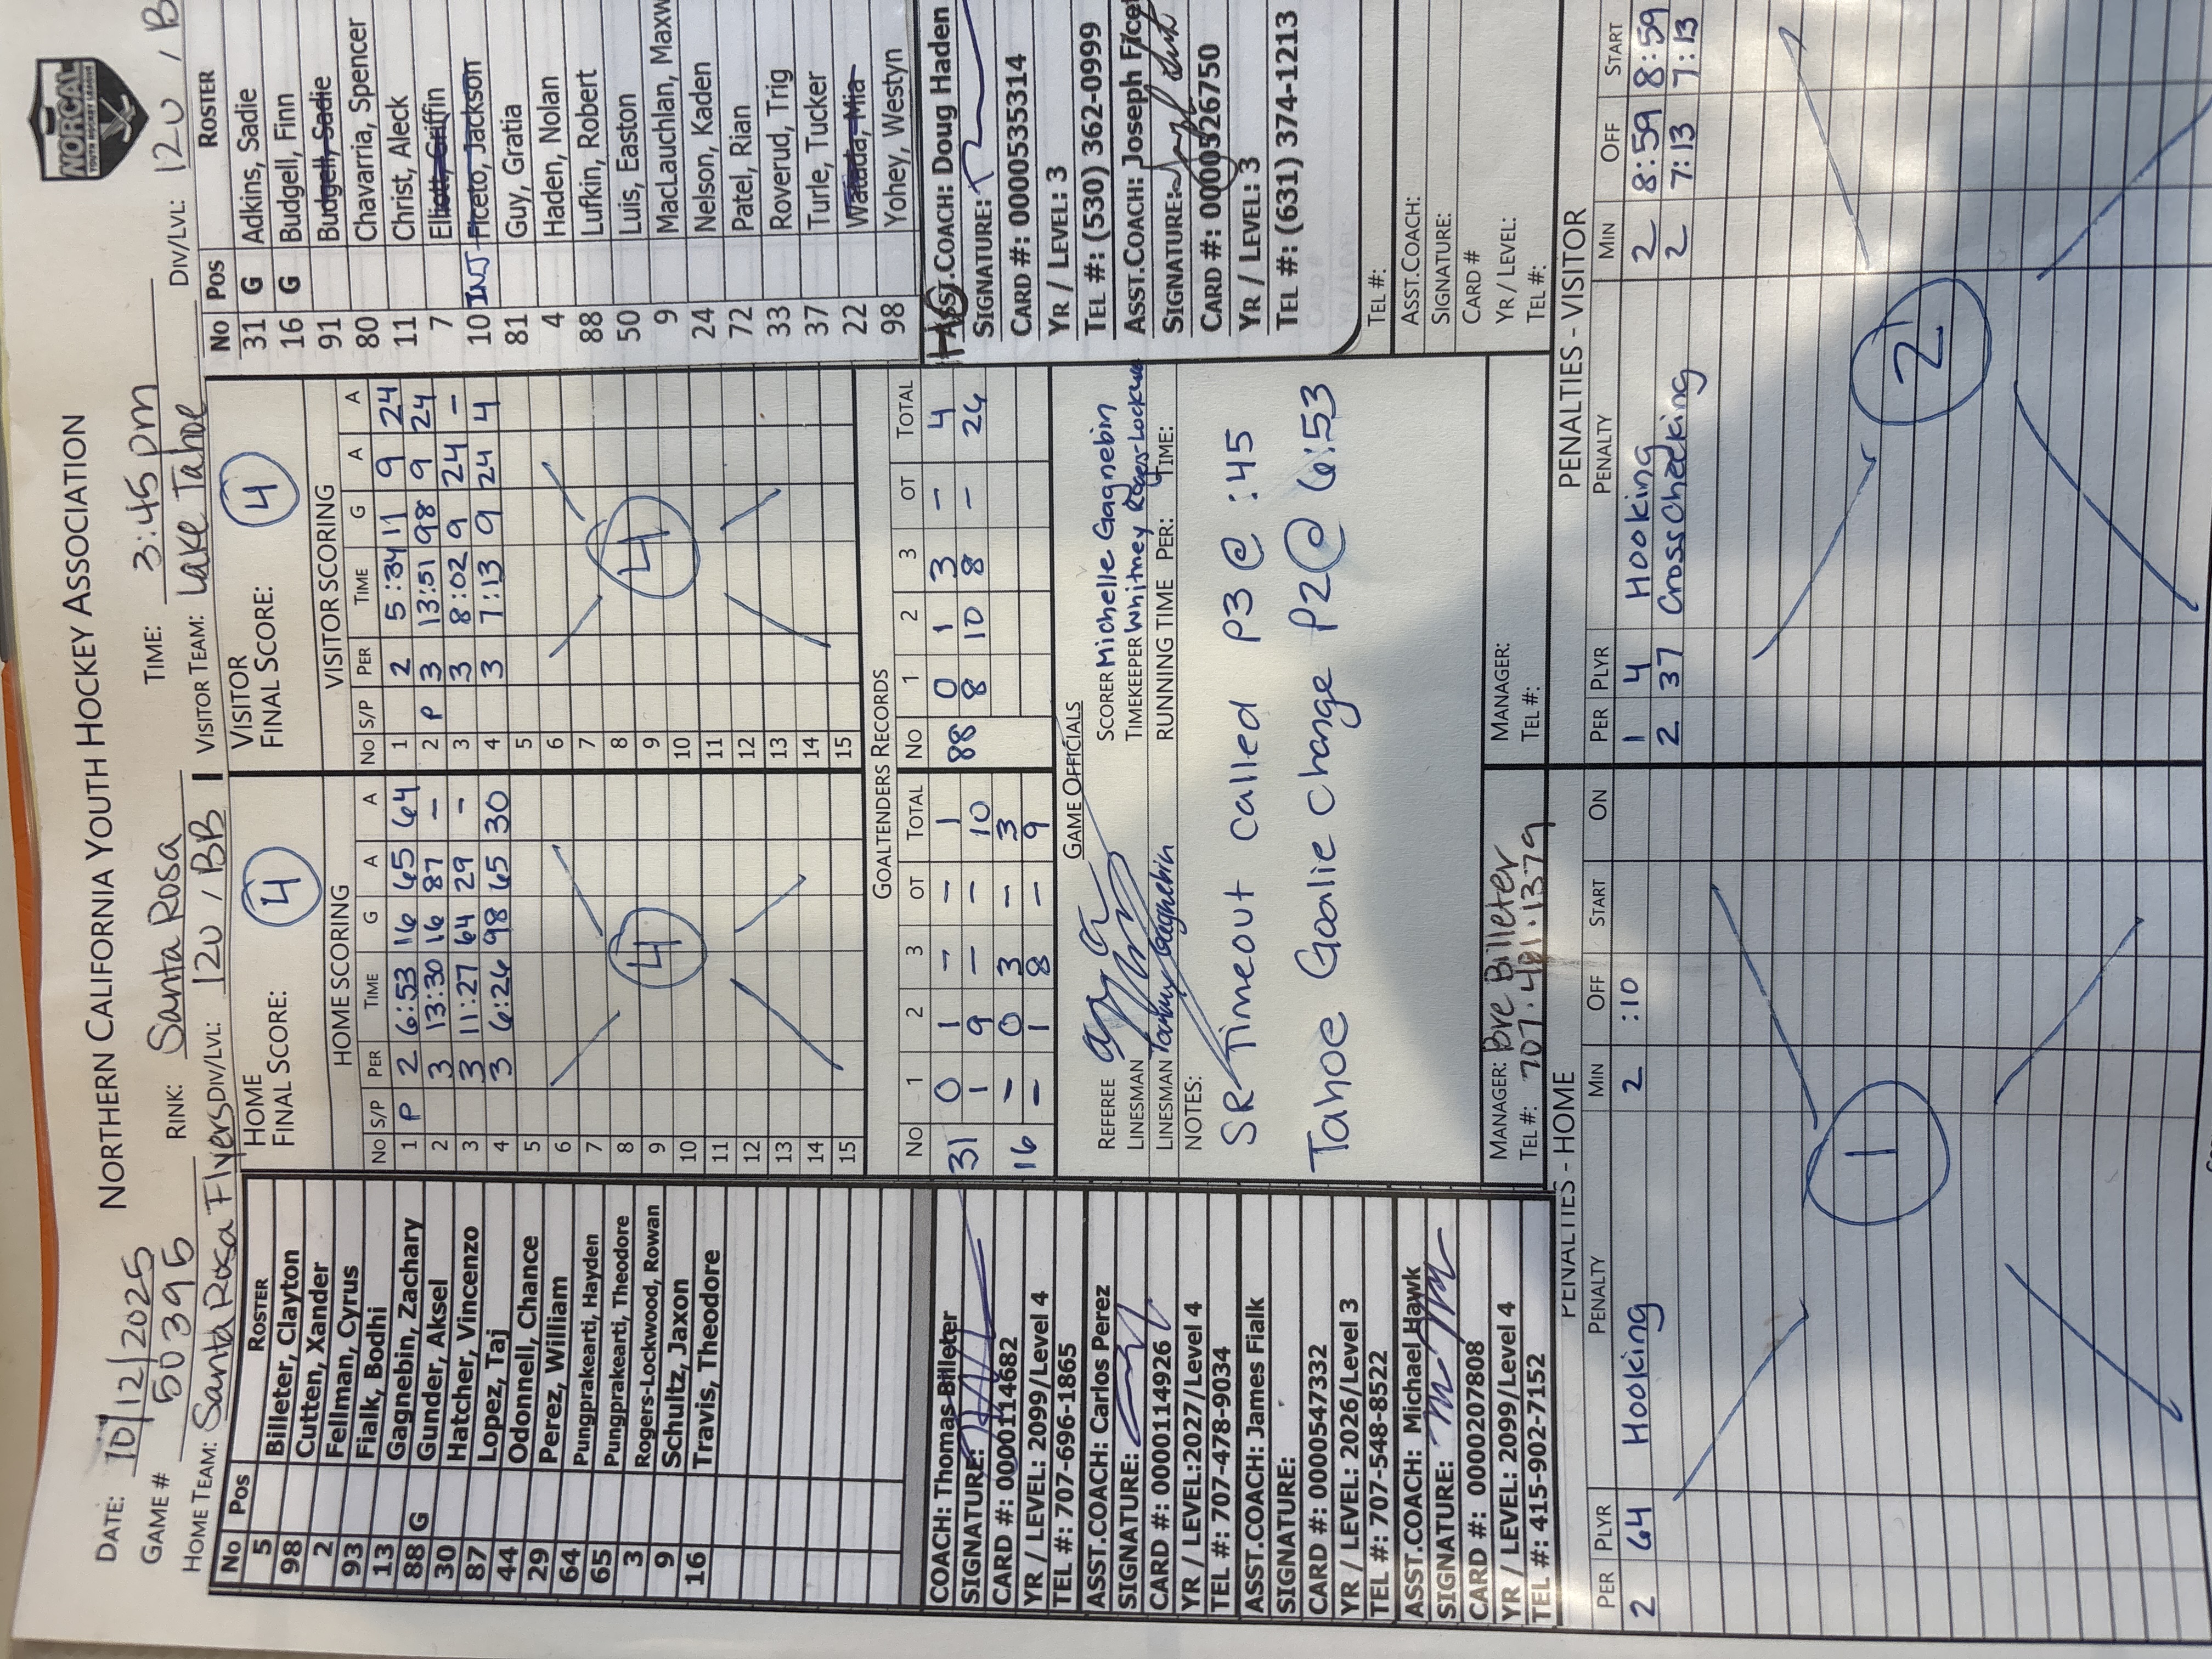 NORTHERN CALIFORNIA YOUTH HOCKEY ASSOCIATION
NORCAL
YOUTH HOCKEY LEAGUE
DATE: 10/12/2025
GAME # 50395 RINK: Santa Rosa TIME: 3:45 pm
HOME TEAM: Santa Rosa Flyers DIV/LVL: 12U / BB VISITOR TEAM: Lake Tahoe DIV/LVL: 12U / B
No Pos ROSTER
5 Billeter, Clayton
98 Cutten, Xander
2 Fellman, Cyrus
93 Fialk, Bodhi
13 Gagnebin, Zachary
88 G Gunder, Aksel
30 Hatcher, Vincenzo
87 Lopez, Taj
44 Odonnell, Chance
29 Perez, William
64 Pungprakearti, Hayden
65 Pungprakearti, Theodore
3 Rogers-Lockwood, Rowan
9 Schultz, Jaxon
16 Travis, Theodore
COACH: Thomas Billeter
SIGNATURE:
CARD #: 0000114682
YR / LEVEL: 2099/Level 4
TEL #: 707-696-1865
ASST.COACH: Carlos Perez
SIGNATURE:
CARD #: 0000114926
YR / LEVEL:2027/Level 4
TEL #: 707-478-9034
ASST.COACH: James Fialk
SIGNATURE:
CARD #: 0000547332
YR / LEVEL: 2026/Level 3
TEL #: 707-548-8522
ASST.COACH: Michael Hawk
SIGNATURE:
CARD #: 0000207808
YR / LEVEL: 2099/Level 4
TEL #: 415-902-7152
HOME
FINAL SCORE: 4
HOME SCORING
No S/P PER TIME G A A
1 P 2 6:53 16 65 64
2 3 13:30 16 87 –
3 3 11:27 64 29 –
4 3 6:26 98 65 30
5
6
7
8
9
10
11
12
13
14
15
4
VISITOR
FINAL SCORE: 4
VISITOR SCORING
No S/P PER TIME G A A
1 2 5:34 11 9 24
2 P 3 13:51 98 9 24
3 3 8:02 9 24 –
4 3 7:13 9 24 4
5
6
7
8
9
10
11
12
13
14
15
4
GOALTENDERS RECORDS
No 1 2 3 OT TOTAL
31 0 1 – – 1
1 9 – – 10
16 – 0 3 – 3
– 1 8 – 9
No 1 2 3 OT TOTAL
88 0 1 3 – 4
8 10 8 – 26
GAME OFFICIALS
REFEREE
LINESMAN
LINESMAN
SCORER Michelle Gagnebin
TIMEKEEPER Whitney Rogers-Lockwood
RUNNING TIME PER: TIME:
NOTES:
SR Timeout called P3 @ :45
Tahoe Goalie Change P2 @ 6:53
MANAGER: Bre Billeter
TEL #: 707.481.1379
MANAGER:
TEL #:
No Pos ROSTER
31 G Adkins, Sadie
16 G Budgell, Finn
91 Budgell, Sadie
80 Chavarria, Spencer
11 Christ, Aleck
7 Elliott, Griffin
10 INJ Ficeto, Jackson
81 Guy, Gratia
4 Haden, Nolan
88 Lufkin, Robert
50 Luis, Easton
9 MacLauchlan, Maxw
24 Nelson, Kaden
72 Patel, Rian
33 Roverud, Trig
37 Turle, Tucker
22 Watada, Mia
98 Yohey, Westyn
HC ASST.COACH: Doug Haden
SIGNATURE:
CARD #: 0000535314
YR / LEVEL: 3
TEL #: (530) 362-0999
ASST.COACH: Joseph Ficet
SIGNATURE:
CARD #: 0000526750
YR / LEVEL: 3
TEL #: (631) 374-1213
TEL #:
ASST.COACH:
SIGNATURE:
CARD #
YR / LEVEL:
TEL #:
PENALTIES - HOME
PER PLYR PENALTY MIN OFF START ON
2 64 Hooking 2 :10
1
PENALTIES - VISITOR
PER PLYR PENALTY MIN OFF START
1 4 Hooking 2 8:59 8:59
2 37 Cross Checking 2 7:13 7:13
2